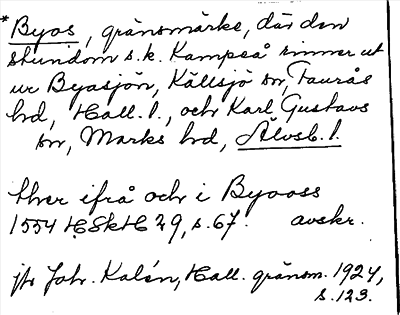 * Byos, gränsmärke, där den
stundom s.k. Kampeå rinner ut
ur Byasjön, Källsjö sn, Faurås
hd, Hall. l., och Karl Gustavs
sn, Marks hd, Älvsb. l.
ther ifrå och i Byooss
1554 HSkH 29, s. 67. avskr.
jfr Joh. Kalén, Hall. gränsm. 1924,
s. 123.